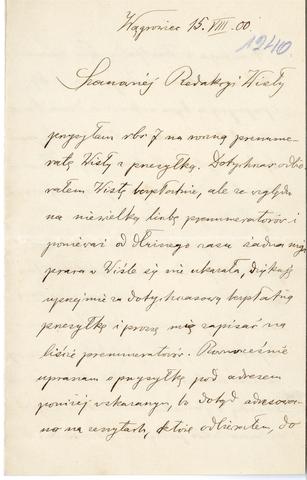 Wągrowiec 15. VIII. 00.
1240.
Szanownéj Redakcyi Wisły
przysyłam rbs. 7 na roczną prenume-
ratę Wisły z przesyłką. Dotychczas odbie-
rałem Wisłę bezpłatnie, ale ze względu
na niewielką liczbę prenumeratorów i
ponieważ od dłuższego czasu żadna moja
praca w Wiśle się nie ukazała, dziękuję
uprzejmie za dotychczasową bezpłatną
przesyłkę i proszę mię zapisać na
liście prenumeratorów. Równocześnie
upraszam o przysyłkę pod adresem
poniżej wskazanym, bo dotąd adresowa-
no na zeszytach, które odbierałem, do